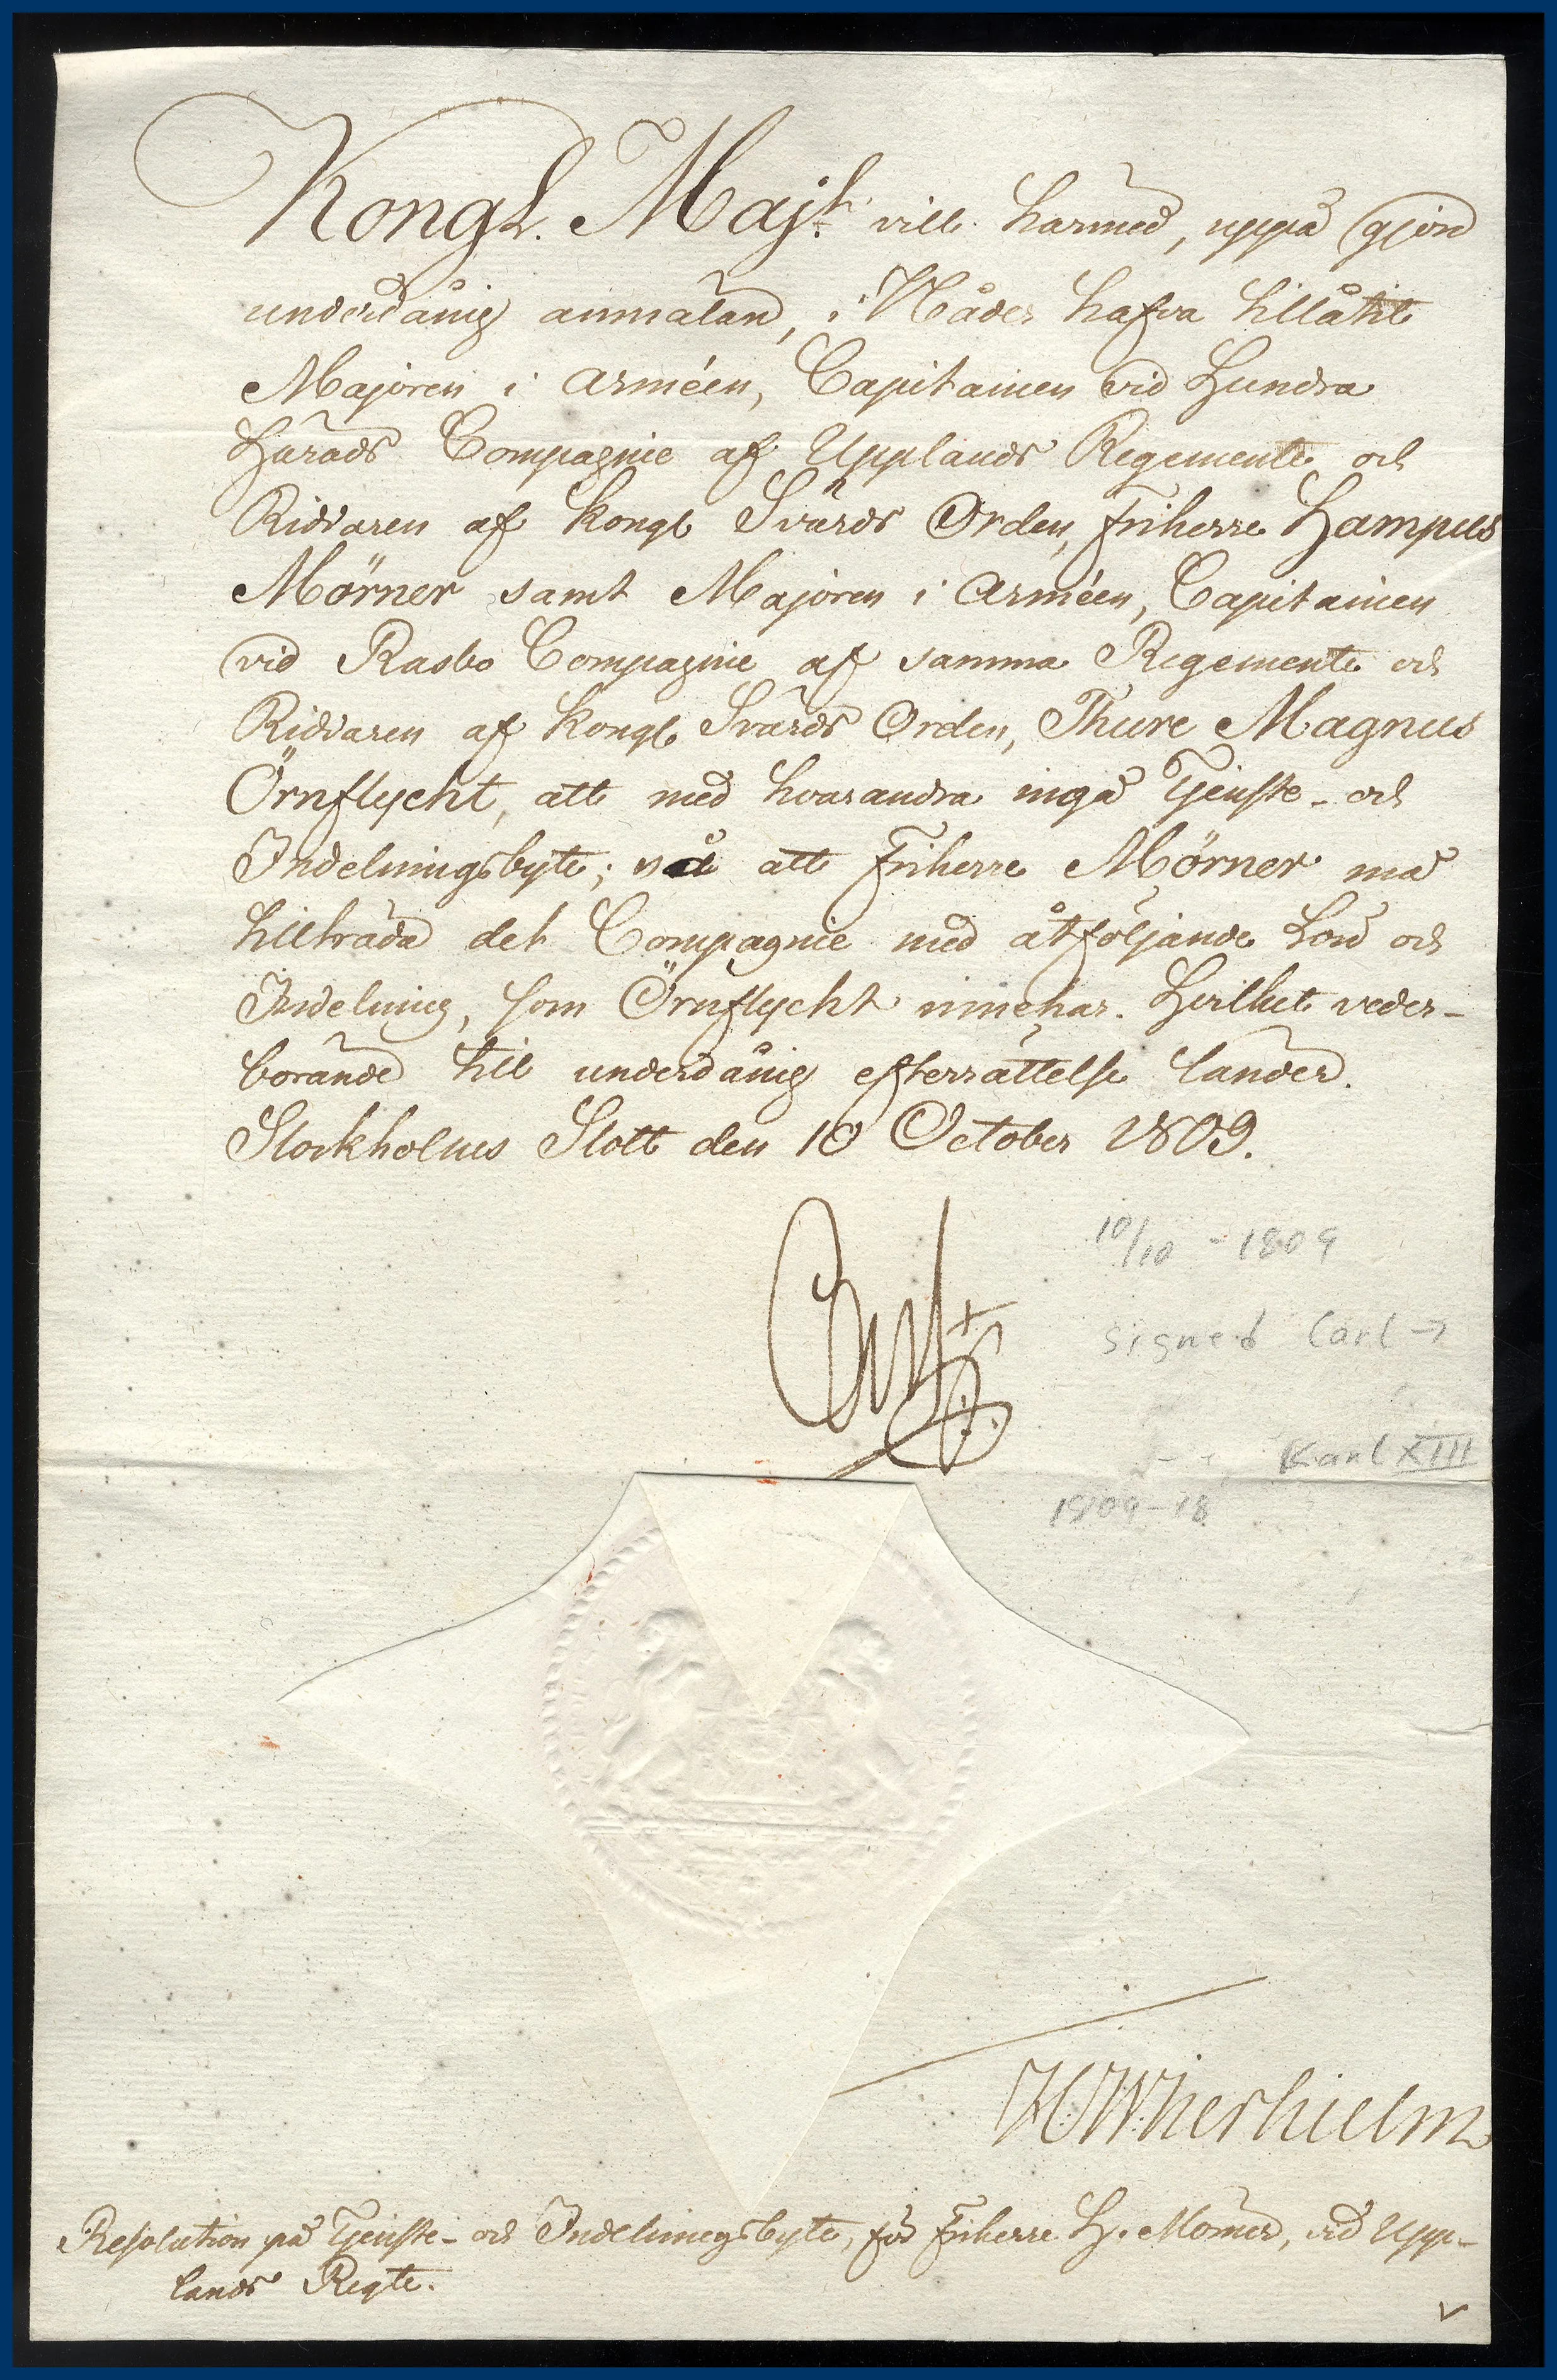 Kongl. Maj:t vill härmed, uppå gjord
underdånig anmälan, i Nåder hafva tillåtit
Majoren i Arméen, Capitainen vid Hundra
Härads Compagnie af Upplands Regemente och
Riddaren af Kongl Svärds Orden, Friherre Hampus
Mörner samt Majoren i Arméen, Capitainen
vid Rasbo Compagnie af samma Regemente och
Riddaren af Kongl Svärds Orden, Thure Magnus
Örnflycht, att med hvarandra ingå Tjenste- och
Indelningsbyte; så att Friherre Mörner må
tillträda det Compagnie med åtföljande Lön och
Indelning, som Örnflycht innehar. Hvilket veder-
börande till underdånig efterrättelse länder.
Stockholms Slott den 10 October 1809.
Carl
10/10 - 1809
signed Carl →
Karl XIII
1809-18
Resolution på Tjenste- och Indelningsbyte, för Friherre H. Mörner, vid Upp-
lands Regte.